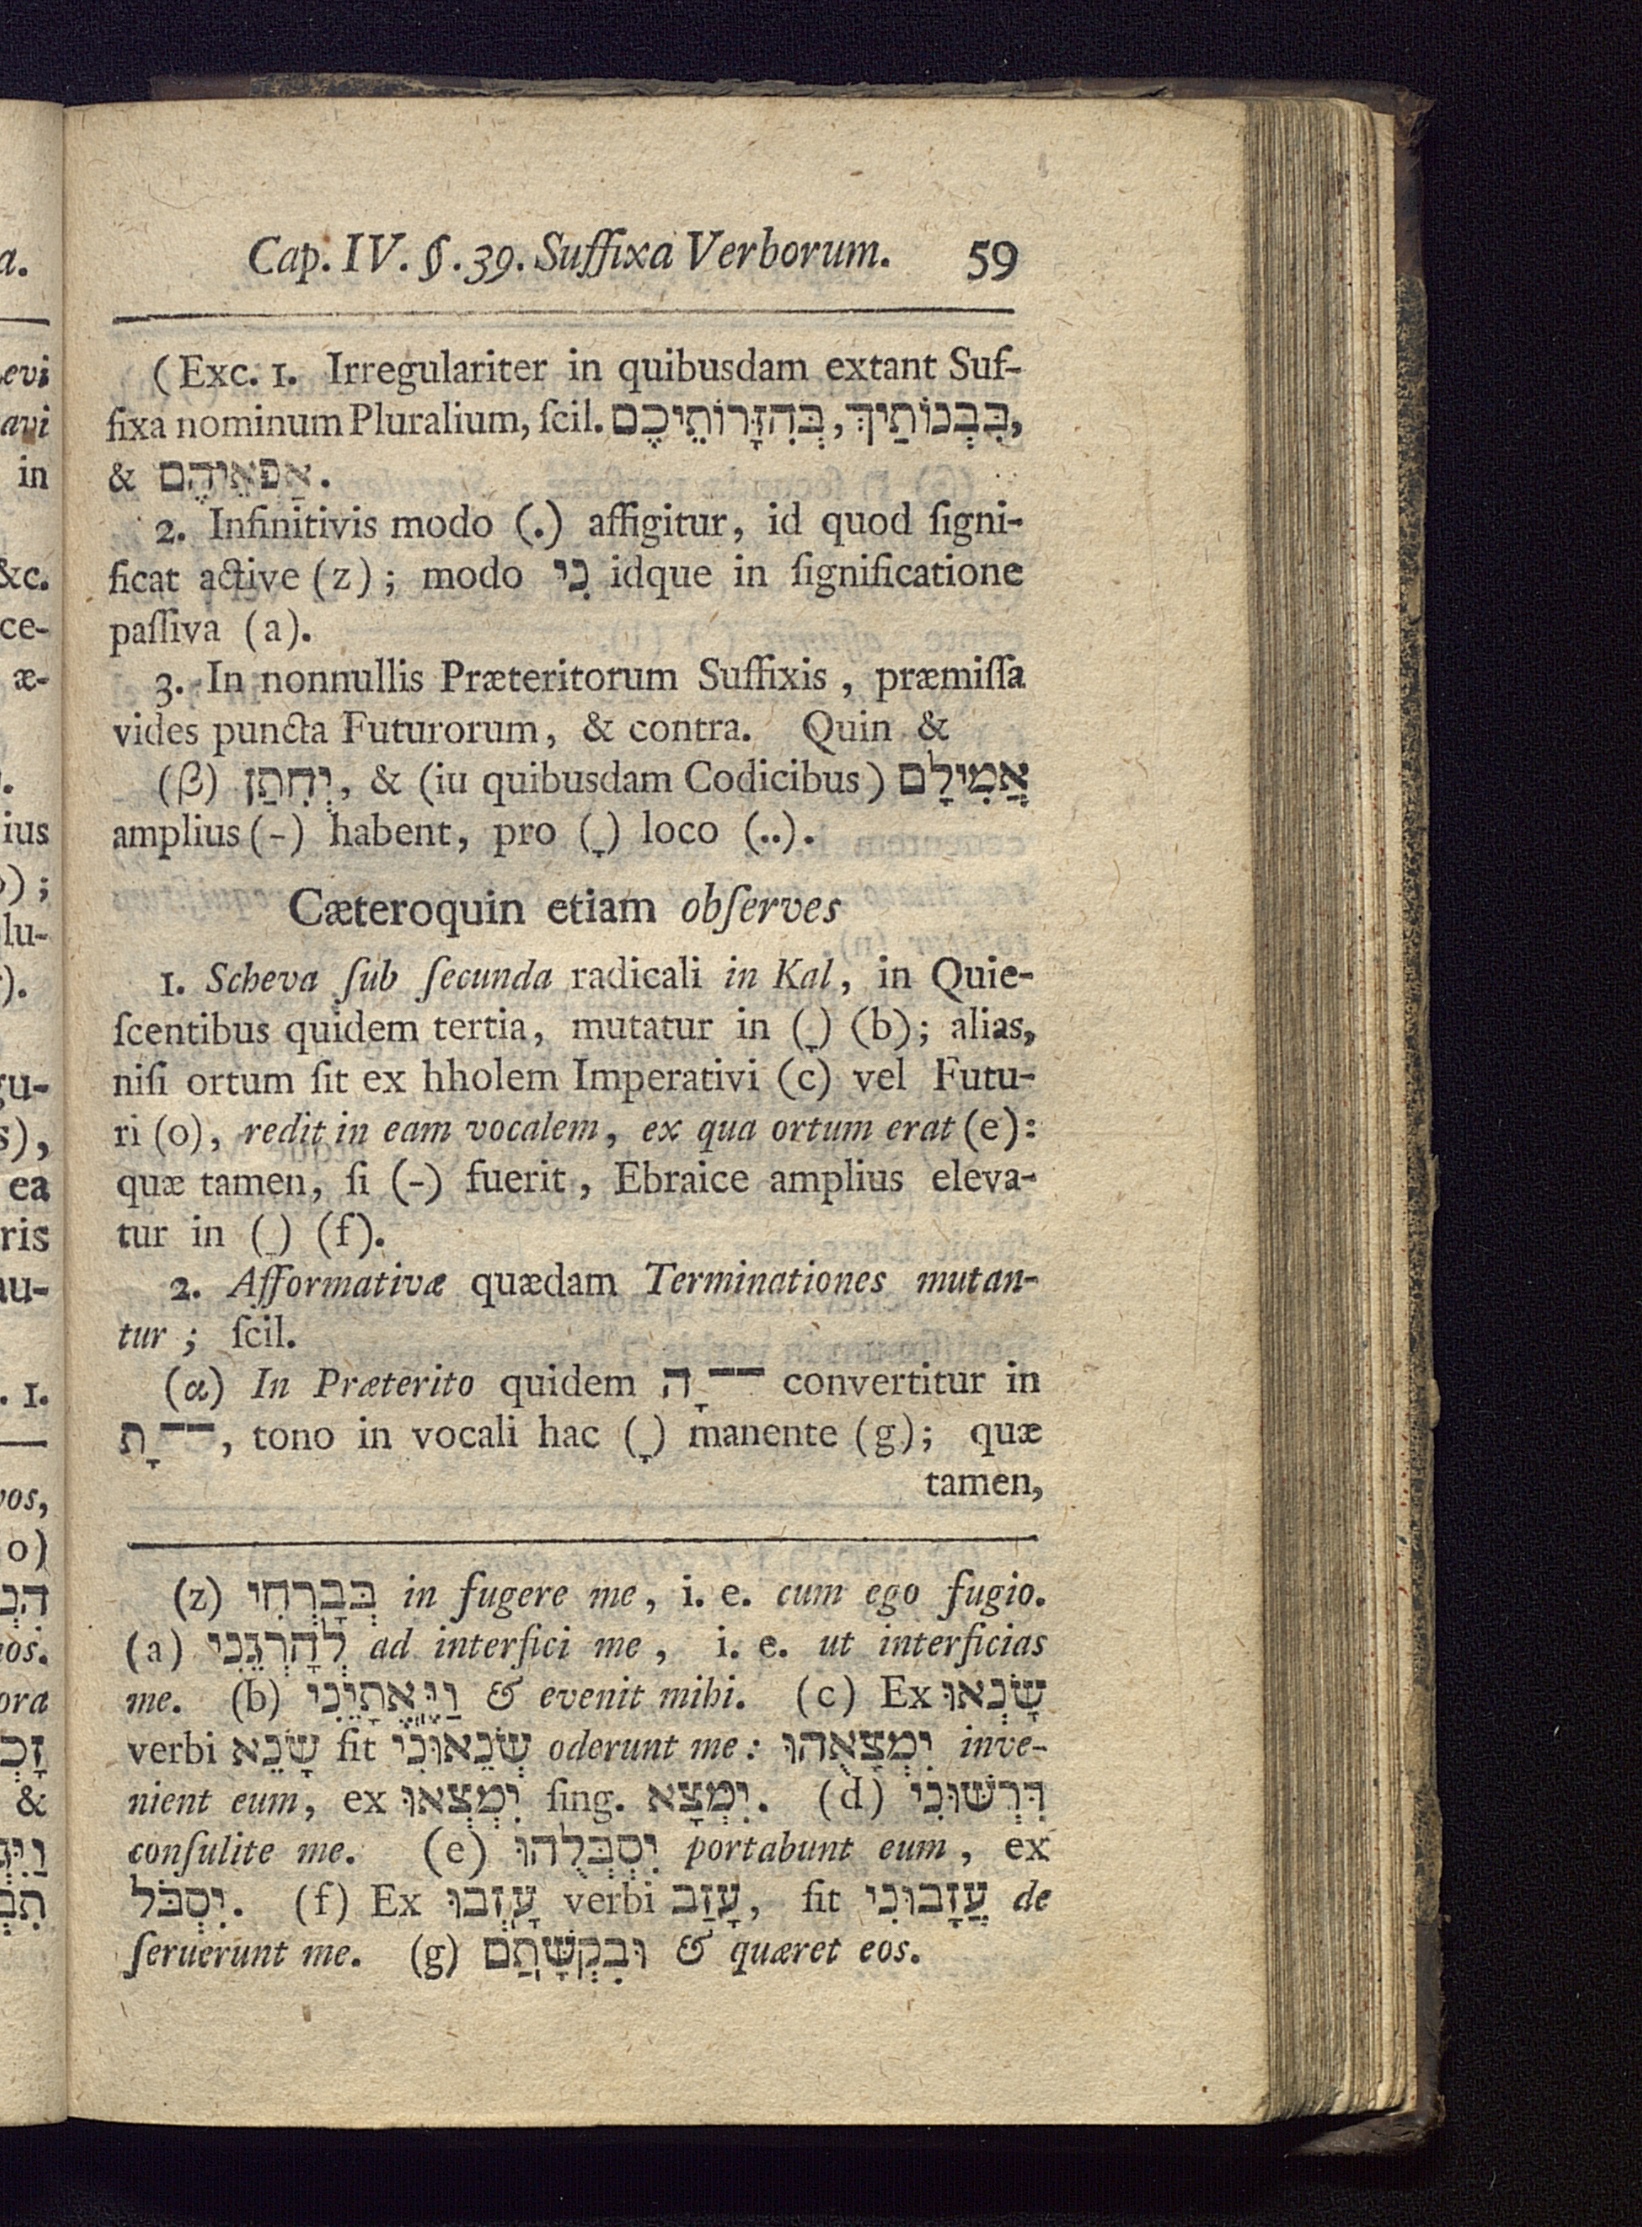 Cap. IV. §. 39. Suffixa Verborum. 59
(Exc. 1. Irregulariter in quibusdam extant Suf-
fixa nominum Pluralium, ſcil. בִּבְנוֹתַיִךְ, בְּהִזָּרוֹתֵיכֶם,
& אַפְאֵיהֶם.
2. Infinitivis modo (.) affigitur, id quod ſigni-
ficat active (z); modo נִי idque in ſignificatione
paſſiva (a).
3. In nonnullis Præteritorum Suffixis, præmiſſa
vides puncta Futurorum, & contra. Quin &
(β) יְחִתַן, & (iu quibusdam Codicibus) אֲמִילָם
amplius (-) habent, pro (ָ) loco (..).
Cæteroquin etiam obſerves
1. Scheva ſub ſecunda radicali in Kal, in Quie-
ſcentibus quidem tertia, mutatur in (ָ) (b); alias,
niſi ortum ſit ex hholem Imperativi (c) vel Futu-
ri (o), redit in eam vocalem, ex qua ortum erat (e):
quæ tamen, ſi (-) fuerit, Ebraice amplius eleva-
tur in () (f).
2. Afformativæ quædam Terminationes mutan-
tur; ſcil.
(α) In Præterito quidem הָ -- convertitur in
תָ --, tono in vocali hac (ָ) manente (g); quæ
tamen,
(z) בְּבָרְחִי in fugere me, i. e. cum ego fugio.
(a) לְהָרְגֵנִי ad interfici me, i. e. ut interficias
me. (b) וַיֶּאֱתָיֵנִי & evenit mihi. (c) Ex שָׂנְאוּ
verbi שָׂנֵא fit שְׂנֵאוּנִי oderunt me: יִמְצָאֻהוּ inve-
nient eum, ex יִמְצְאוּ ſing. יִמְצָא. (d) דִּרְשׁוּנִי
conſulite me. (e) יִסְבְּלֻהוּ portabunt eum, ex
יִסְבֹּל. (f) Ex עָזְבוּ verbi עָזַב, fit עֲזָבוּנִי de
ſeruerunt me. (g) וּבִקְשָׁתַם & quæret eos.